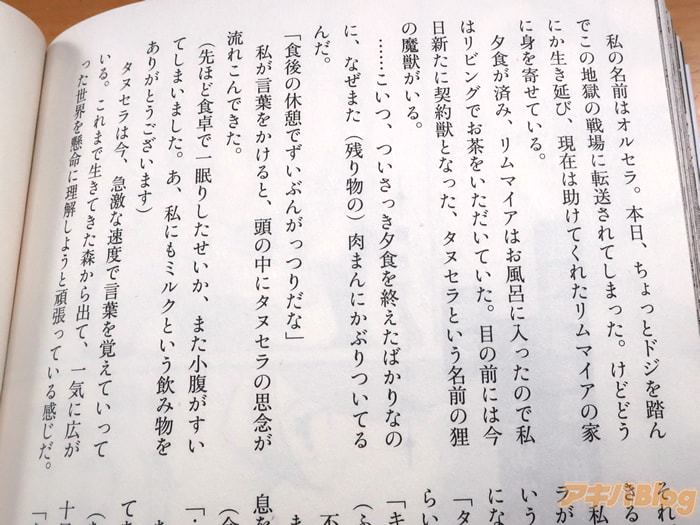 私の名前はオルセラ。本日、ちょっとドジを踏ん
でこの地獄の戦場に転送されてしまった。けどどう
にか生き延び、現在は助けてくれたリムマイアの家
に身を寄せている。
夕食が済み、リムマイアはお風呂に入ったので私
はリビングでお茶をいただいていた。目の前には今
日新たに契約獣となった、タヌセラという名前の狸
の魔獣がいる。
……こいつ、ついさっき夕食を終えたばかりなの
に、なぜまた（残り物の）肉まんにかぶりついてる
んだ。
「食後の休憩でずいぶんがっつりだな」
私が言葉をかけると、頭の中にタヌセラの思念が
流れこんできた。
（先ほど食卓で一眠りしたせいか、また小腹がすい
てしまいました。あ、私にもミルクという飲み物を
ありがとうございます）
タヌセラは今、急激な速度で言葉を覚えていって
いる。これまで生きてきた森から出て、一気に広が
った世界を懸命に理解しようと頑張っている感じだ。
それ
きる
私
ラが
いう
にな
「タ
らい
「キ
（ふ
不
ま
息を
（合
アキバBlog